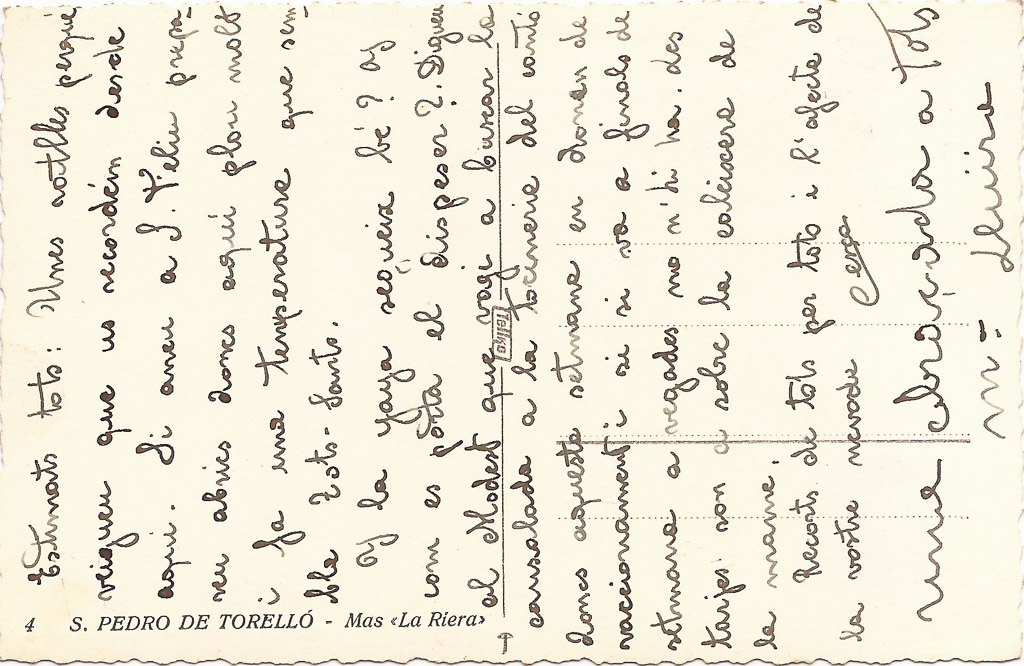 Estimats tots: Unes ratlles perquè
veigueu que us recordém desde
aquí. Si aneu a S. Feliu prepa-
reu abrics doncs aquí plou molt
i fa una temperatura que sem-
bla Tots-Sants.
I la yaya segueix bé? I
com es porta el dispeser? Digueu
al Modest que vagi a buscar la
cansalada a la tocineria del cantó
doncs aquesta setmana en donen de
racionament i si si va a finals de
setmana a vegades no n'hi ha. des
tarjes son a sobre la calaixera de
la mamá.
Recorts de tots per tots i l'afecte de
la vostre nevoda
una abraçada a tots
Mª Lluisa
4 S. PEDRO DE TORELLÓ - Mas «La Riera»